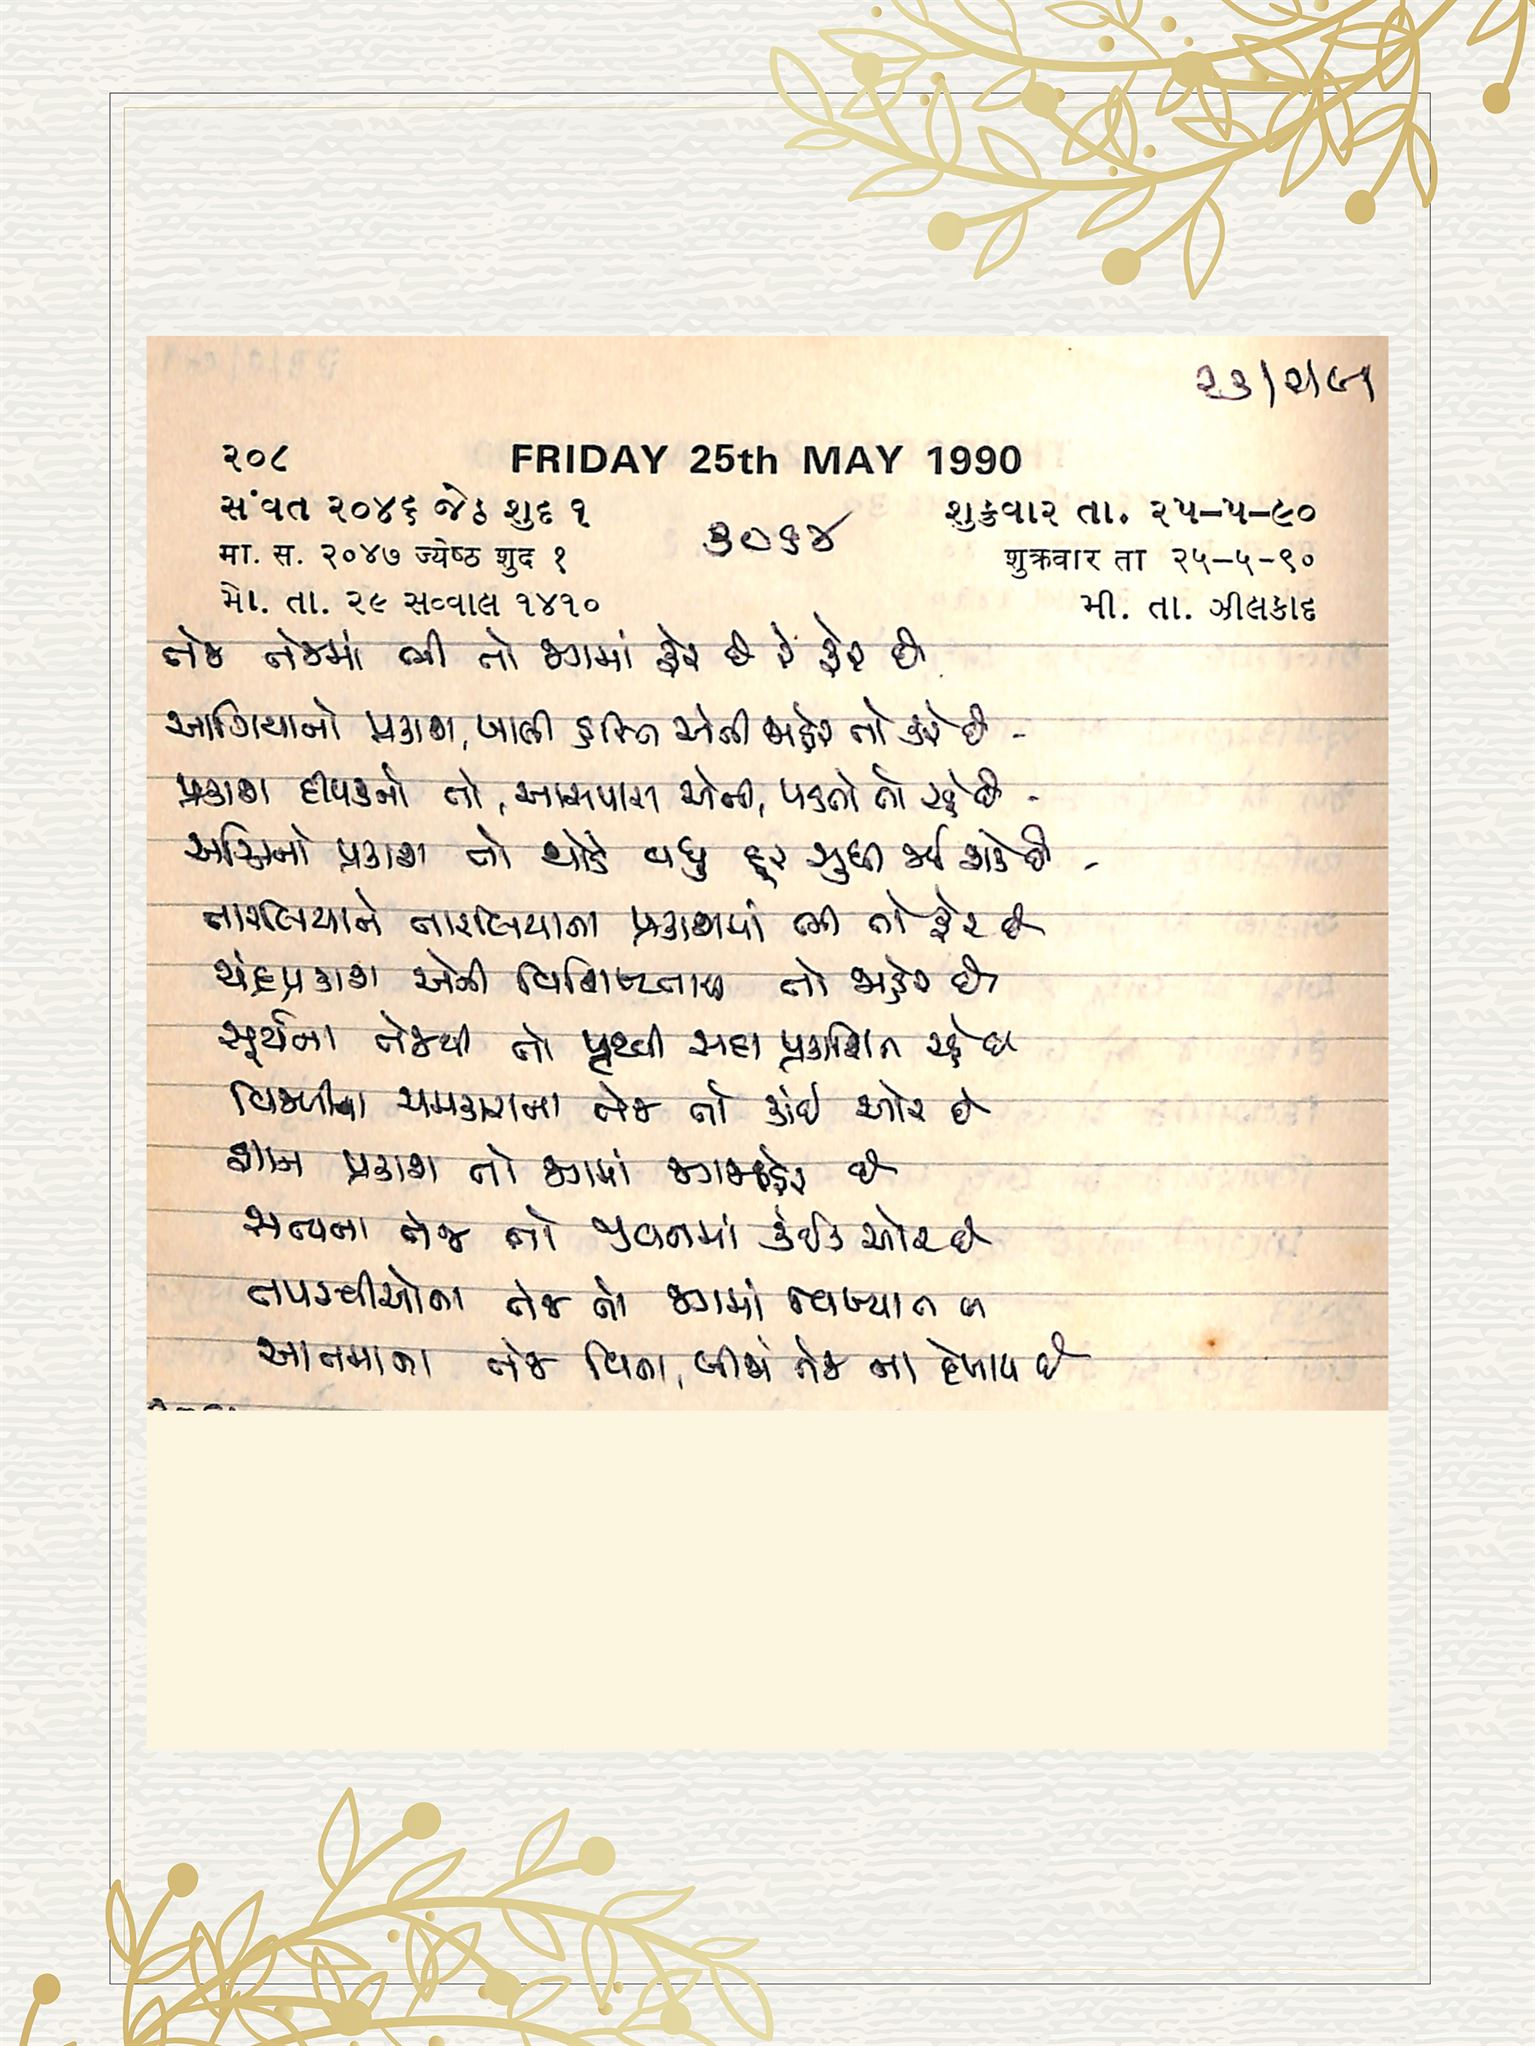 ૨૩/૨/૯૧
૨૦૮ FRIDAY 25th MAY 1990
સંવત ૨૦૪૬ જેઠ શુદ ૧ શુક્રવાર તા. ૨૫-૫-૯૦
૩૦૬૪
मा. स. २०४७ ज्येष्ठ शुद १ शुक्रवार ता २५-५-९०
મો. તા. ૨૯ સવ્વાલ ૧૪૧૦ મી. તા. ઝીલકાદ
તેજ તેજમાં ભી તો જગમાં ફેર છે રે ફેર છે
આગિયાનો પ્રકાશ, ખાલી હસ્તિ એની જાહેર તો કરે છે -
પ્રકાશ દીપકનો તો, આસપાસ એની, પડતો તો રહે છે -
અગ્નિનો પ્રકાશ તો થોડે વધુ દૂર સુધી જઈ શકે છે -
તારલિયાને તારલિયાના પ્રકાશમાં ભી તો ફેર છે
ચંદ્રપ્રકાશ એની વિશિષ્ટતામાં તો જાહેર છે
સૂર્યના તેજથી તો પૃથ્વી સદા પ્રકાશિત રહે છે
વિજળીના ચમકારાના તેજ તો કાંઈ ઓર છે
જ્ઞાન પ્રકાશ તો જગમાં જગજાહેર છે
સત્યના તેજ તો જીવનમાં કંઈક ઓર છે
તપસ્વીઓના તેજ તો જગમાં વિખ્યાત છે
આતમાના તેજ વિના, બીજાં તેજ ના દેખાય છે